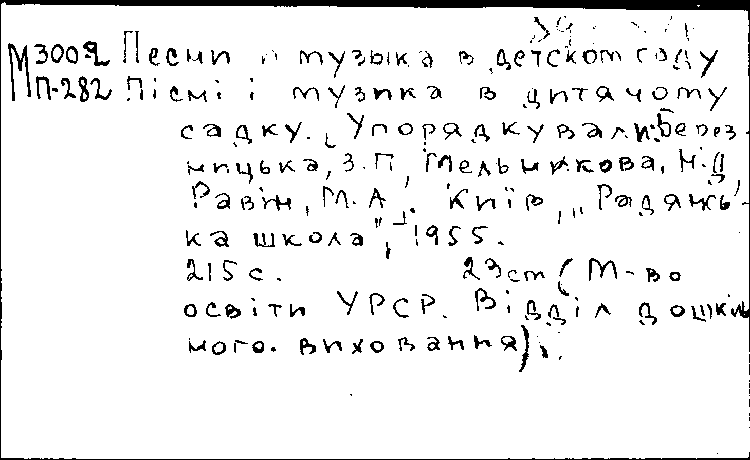 М3002 Песни и музыка в детском саду
П-282 Пісні і музика в дитячому
садку. Упорядкували: Берез-
ницька, З.П., Мельникова, Н.Д.
Равін, М.А. Київ, „Радянсь-
ка школа", 1955.
215 с. 23 cm (М-во
освіти УРСР. Відділ дошкіль
ного виховання).